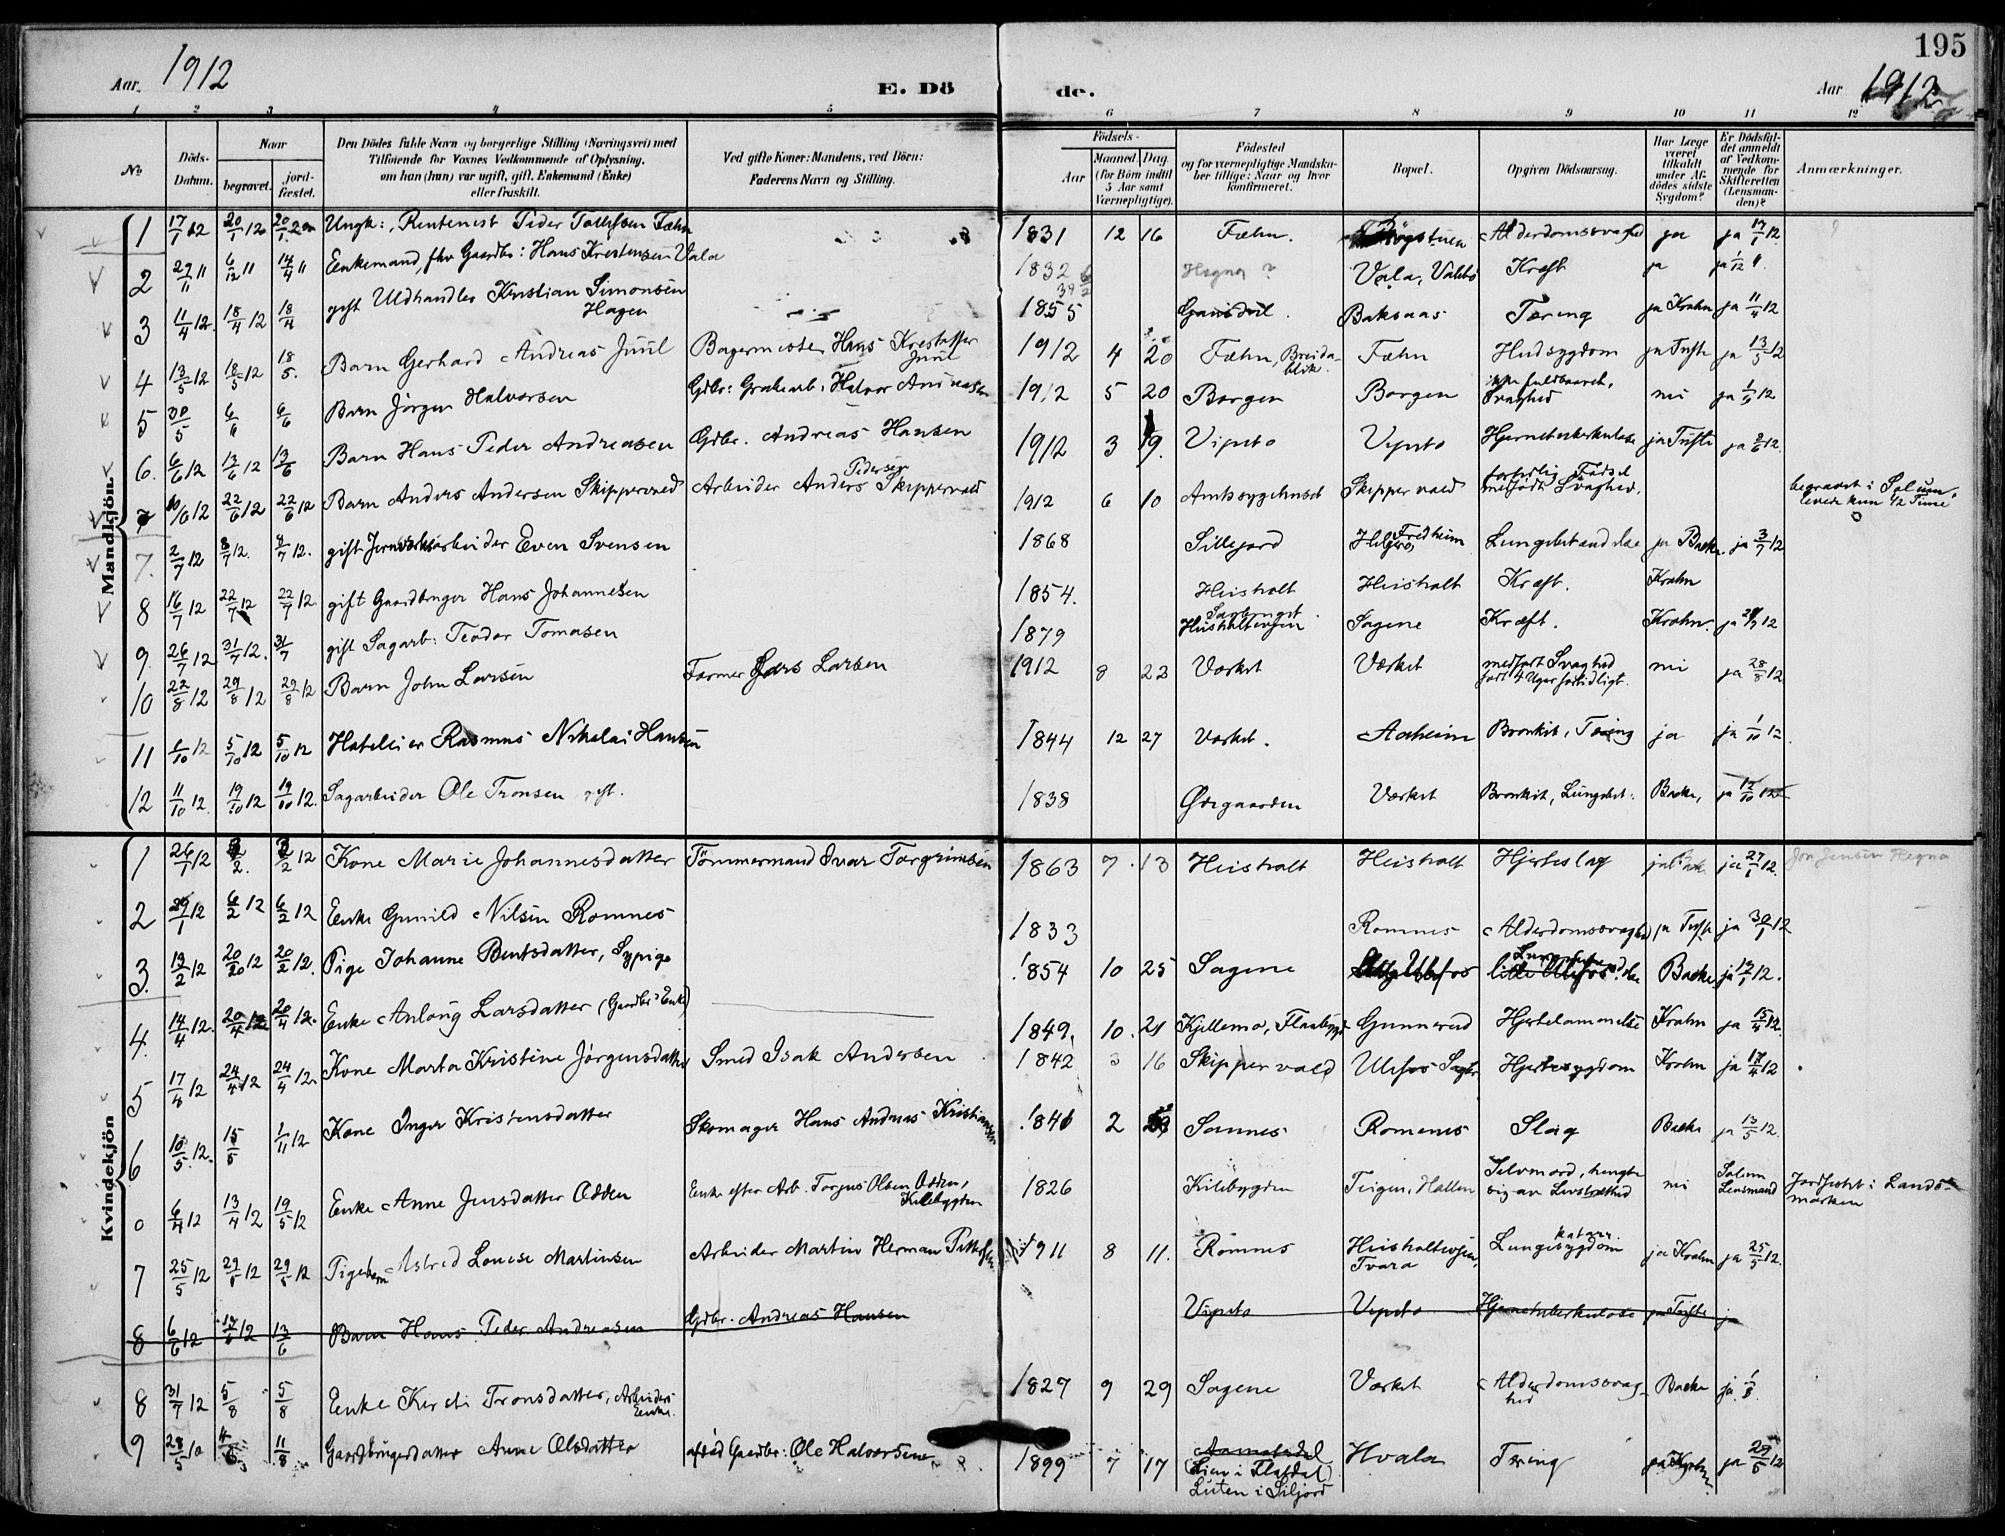 195
Aar. 1912
E. Dö
de.
Aar 1912
1 2 3 4 5 6 7 8 9 10 11 12
No
Döds-Datum.
Naar
begravet.
jordfæstet.
Den Dödes fulde Navn og borgerlige Stilling (Næringsvei) med
Tilföiende for Voxnes Vedkommende af Oplysning,
om han (hun) var ugift, gift, Enkemand (Enke)
eller fraskilt.
Ved gifte Koner: Mandens, ved Börn:
Faderens Navn og Stilling.
Födsels-
Aar
Maaned. Dag.
(for Börn indtil
5 Aar samt
Værnepligtige).
Födested
og for værnepligtige Mandskaber tillige: Naar og hvor
konfirmeret.
Bopæl.
Opgiven Dödsaarsag.
Har Læge
været
tilkaldt
under Afdödes sidste
Sygdom?
Er Dödsfaldet anmeldt
af Vedkommende for
Skifteretten
(Lensmanden)?
Anmærkninger.
Mandkjön.
1 17/1 12 20/1 12 20/1 Ungk: Rentenist Peder Tollefsen Fæhn 1831 12 16 Fæhn. Alderdomssvaghed ja ja 17/1 12
2 29/11 11 6/12 11 14/4 11 Enkemand, fhv Gaardbr: Hans Kristensen Vala 1832 Hegna ? Vala, Valebø Kræft ja ja 1/12 11
3 11/4 12. 18/4 12 18/4 gift Uldhandler Kristian Simonsen Hagen 1855 Baksaas Tæring ja Krohn ja 11/4 12
4 13/5 12 18/5 12 18/5. Barn Gerhard Andreas Juul Bagermester Hans Kristoffer Juul 1912 4 20 Fæhn, Breidablik. Fæhn Hudsygdom ja Tufte ja 13/5 12
5 30/5 6/6 6/6 Barn Jörgen Halvorsen Gdbr: Halvor Andreasen 1912 5 20 Borgen Borgen ikke fuldbaaret, Svaghed nei ja 1/6 12
6. 6/6 12 13/6 12 13/6 Barn Hans Peder Andreasen Gdbr. Andreas Hansen 1912 3 19. Vipeto Vipeto Hjernetuberkulose ja Tufte ja 8/6 12.
7 10/6 12 22/6 12 22/6 12 Barn Anders Andersen Skippervold Arbeider Anders Pedersen Skippervold 1912 6 10 Amtssygehuset Skippervold fortidlig Födsel medfödt Svaghed. begravet i Solum. levede kun 1/2 Time
7. 2/7 12 8/7 12. 8/7 12. gift Jernværksarbeider Even Svensen 1868 Sillejord Fredheim Lungebetændelse ja Backe ja 3/7 12
8 16/7 12 22/7 12 22/7 12. gift Gaardbruger Hans Johannesen 1854. Heisholt Heisholt Kræft. Krohn
9. 26/7 12 31/7 12. 31/7 gift Sagarb: Teodor Tomasen 1879 Sagene Kræft. Krohn. ja 12
10 22/8 12 29/8 12 29/8 12 Barn John Larsen Former Lars Larsen 1912 8 22 Værket Værket medfødt Svaghed født 4 Uger fortidligt. nei ja 28/8 12
11 1/10 12 5/10 12 5/10 12 Hotelleier Rasmus Nikolai Hansen 1844 12 27 Værket. Aaheim Bronkit, Tæring ja ja 1/10 12.
12 11/10 12. 19/10 12 19/10 12. Sagarbeider Ole Tronsen gift. 1838 Øvregaarden Værket Bronkit, Lungebet: Backe, ja 12/10 12
Kvindekjön
1 26/1 12 2/2. 2/2 12 Kone Marie Johannesdatter Tömmermand Ivar Torgrimsen 1863 7 13 Heisholt Heisholt Hjerteslag ja Backe ja 27/1 12 Jon Jensen Hegna
2 29/1 12 6/2 12 6/2 12 Enke Gunild Nilsen Romnes 1833 Romnes Alderdomssvaghed ja Tufte ja 30/1 12
3. 13/2 12 20/2 12 20/2 12. Pige Johanne Bentsdatter, Sypige 1854 10 25 Sagene Lille Ulefos Backe ja 12.
4. 14/4 12. 20/4 12 20/4 12. Enke Anlaug Larsdatter (Gaardbr: Enke) 1849. 10. 21 Kjellemo, Flaabygd Gunnerud Hjertelammelse Krohn ja 15/4 12.
5 17/4 12 24/4 12 24/4 12. Kone Marta Kristine Jörgensdatter Smed Isak Andersen 1842 3 16 Skippervold Ulefos Hjertesygdom Krohn ja 17/4 12
6 10/5 12. 15/5 1/11 12 Kone Inger Kristensdatter Skomager Hans Andreas Kristiansen 1846 2 Sannes Romenes Slag Backe ja 13/5 12.
0 6/4 12 13/4 12 19/5 12 Enke Anne Jensdatter Odden Enke efter Arb. Torjus Olsen Odden, Kilebygden 1826 Kilebygden Teigen, Hollen Selvmord, hengte sig av Livstræthed nei Solum Lensmand Jordfestet i Landsmarken
7 25/5 12 29/5 12 29/5 12 Pigebarn Astrid Louise Martinsen Arbeider Martin Herman Pettersen 1911 8 11. Romnes Heisholteien, Tvara Lungesygdom katarr. ja Krohn ja 25/5 12.
8 6/6 12 13/6 12 13/6 Barn Hans Peder Andreasen Gdbr. Andreas Hansen Vipeto Vipeto Hjernetuberkulose ja Tufte ja
8 31/7 12 5/8 5/8 Enke Kirsti Tronsdatter, Arbeiders Enke. 1827 9 29 Sagene Værket Alderdomssvaghed Backe ja 1/8
9 28/5 10 11/8 Gaardbrugerdatter Anne Olsdatter afdöd Gaardbr: Ole Halvorsen 1899 7 17 Lien i Flatdal Luten i Siljord Hvala Tæring ja ja 29/5 12